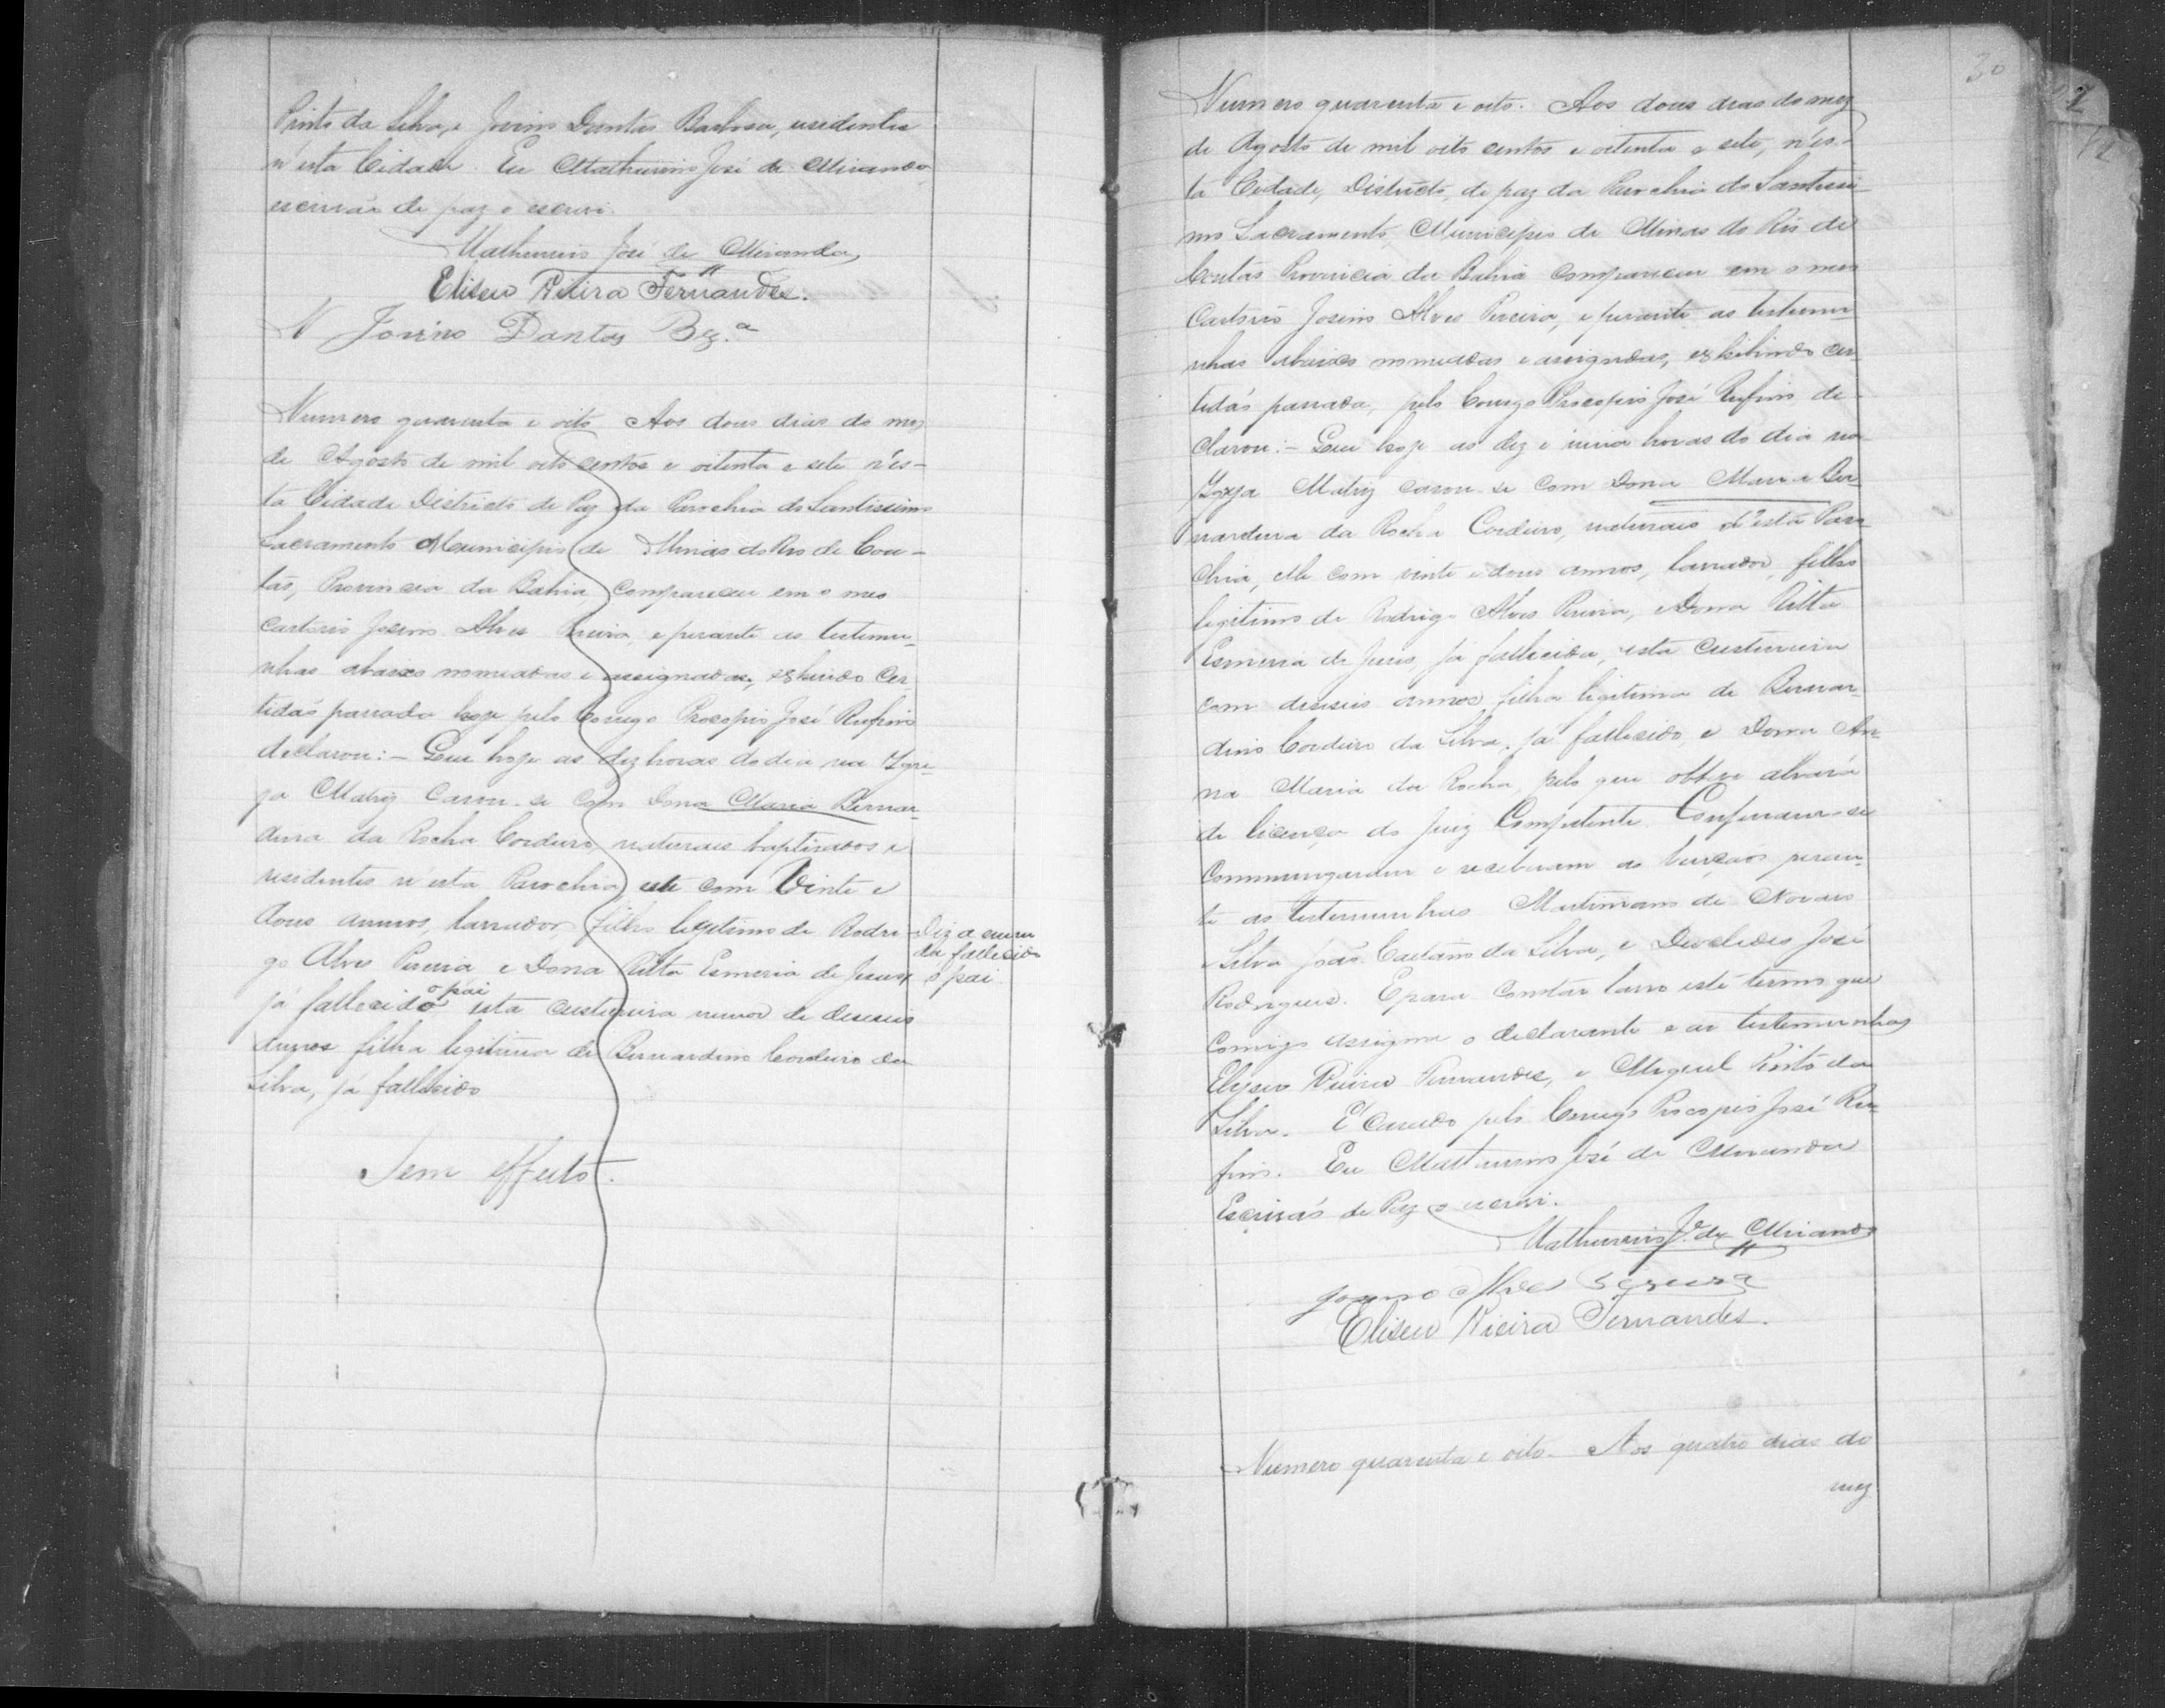 Pinto da Silva, e Jovino Dantas Barbosa, residentes
n'esta Cidade. Eu Mathurino José de Miranda
escrivão de paz o escrevi.
Mathurino José de Miranda
Eliseu Vieira Fernandes.
Jovino Dantas Bz.ª
Numero quarenta e oito Aos dous dias do mez
de Agosto de mil oito centos e oitenta e sete n'es-
ta Cidade Districto de Paz da Parochia do Santissimo
Sacramento Municipio de Minas do Rio de Con-
tas, Provincia da Bahia, compareceu em o meu
cartorio Josino Alves Pereira, e perante as testemu-
nhas abaixo nomeadas e assignadas, exhibindo cer-
tidão passada hoje pelo Conego Procopio José Rufino
declarou:- Que hoje as dez horas do dia na Igre-
ja Matriz casou-se com Dona Maria Bernar-
dina da Rocha Cordeiro, naturaes baptisados e
residentes n'esta Parochia, este com Vinte e
dous annos, lavrador, filho legitimo de Rodri-
go Alves Pereira e Dona Ritta Esmeria de Jesus,
já fallecido o pai esta custureira menor de deseseis
annos filha legitima de Bernardino Cordeiro da
Silva, já fallecido
Sem effeito.
Diz a emen
da fallecido
o pai.
30
Numero quarenta e oito. Aos dous dias do mez
de Agosto de mil oito centos e oitenta e sete, n'es-
ta Cidade, Districto, de paz da Parochia do Santissi-
mo Sacramento, Municipio de Minas do Rio de
Contas Provincia da Bahia compareceu em o meu
Cartorio Josino Alves Pereira, e perante as testemu-
nhas abaixo nomeadas e assignadas, exhibindo cer-
tidão passada, pelo Conego Procopio José Rufino de-
clarou:- Que hoje as dez e meia horas do dia na
Igreja Matriz casou-se com Dona Maria Ber-
nardina da Rocha Cordeiro, naturaes d'esta Paro-
chia, elle com vinte e dous annos, lavrador, filho
legitimo de Rodrigo Alves Pereira, e Dona Ritta
Esmeria de Jesus, já fallecida, esta custureira
com deseseis annos filha legitima de Bernar-
dino Cordeiro da Silva, já fallecido, e Dona An-
na Maria da Rocha, pelo que obteve alvará
de licença do Juiz Competente. Confessaram-se
commungaram e receberam as bençãos peran-
te as testemunhas Martiniano de Novaes
e Silva João Caetano da Silva, e José
Rodrigues. E para constar lavro este termo que
comigo assigna o declarante e as testemunhas
Elyseu Vieira Fernandes, e Miguel Pinto da
Silva. E' Casado pelo Conego Procopio José Ru-
fino. Eu Mathurino José de Miranda
Escrivão de Paz o escrevi.
Mathurino J. de Miranda
Josino Alves Pereira
Eliseu Vieira Fernandes.
Numero quarenta e oito. Aos quatro dias do
mez